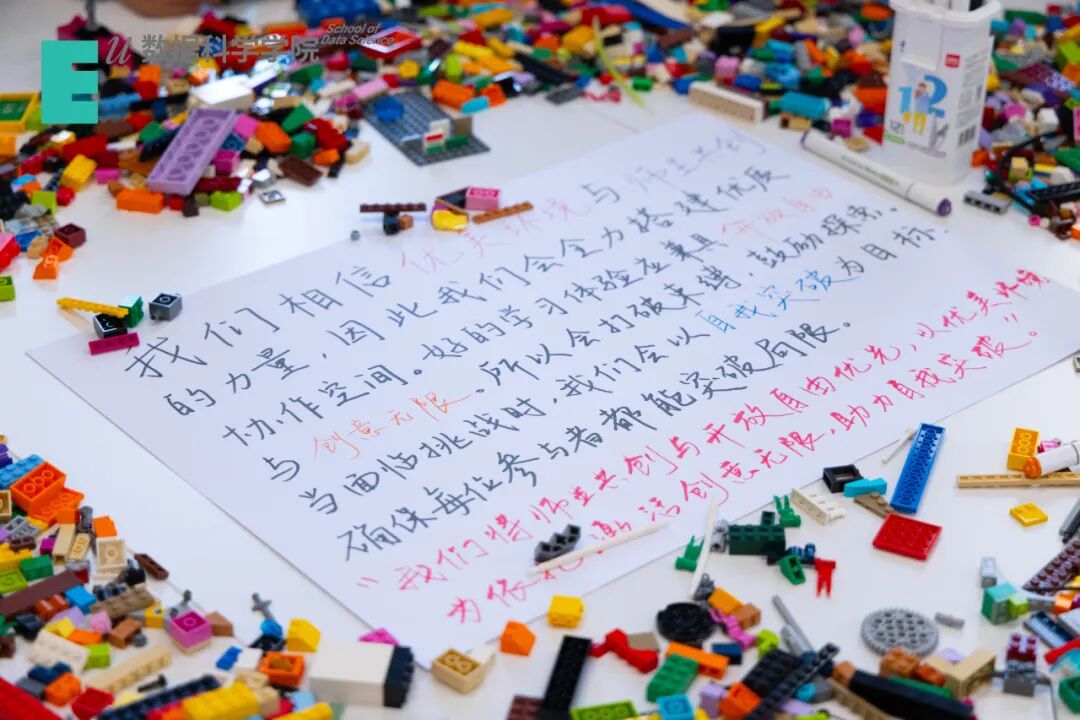 E
u 数据科学学院
School of
Data Science
12
我们相信优美环境与师生共创
的力量，因此我们会全力搭建优质
协作空间。好的学习体验应兼具开放自由
与创意无限。所以会打破束缚，鼓励探索。
当面临挑战时，我们会以自我突破为目标
确保每位参与者都能突破局限。
“我们将师生共创与开放自由优先，以优美环境
为依托，激活创意无限，助力自我突破。”